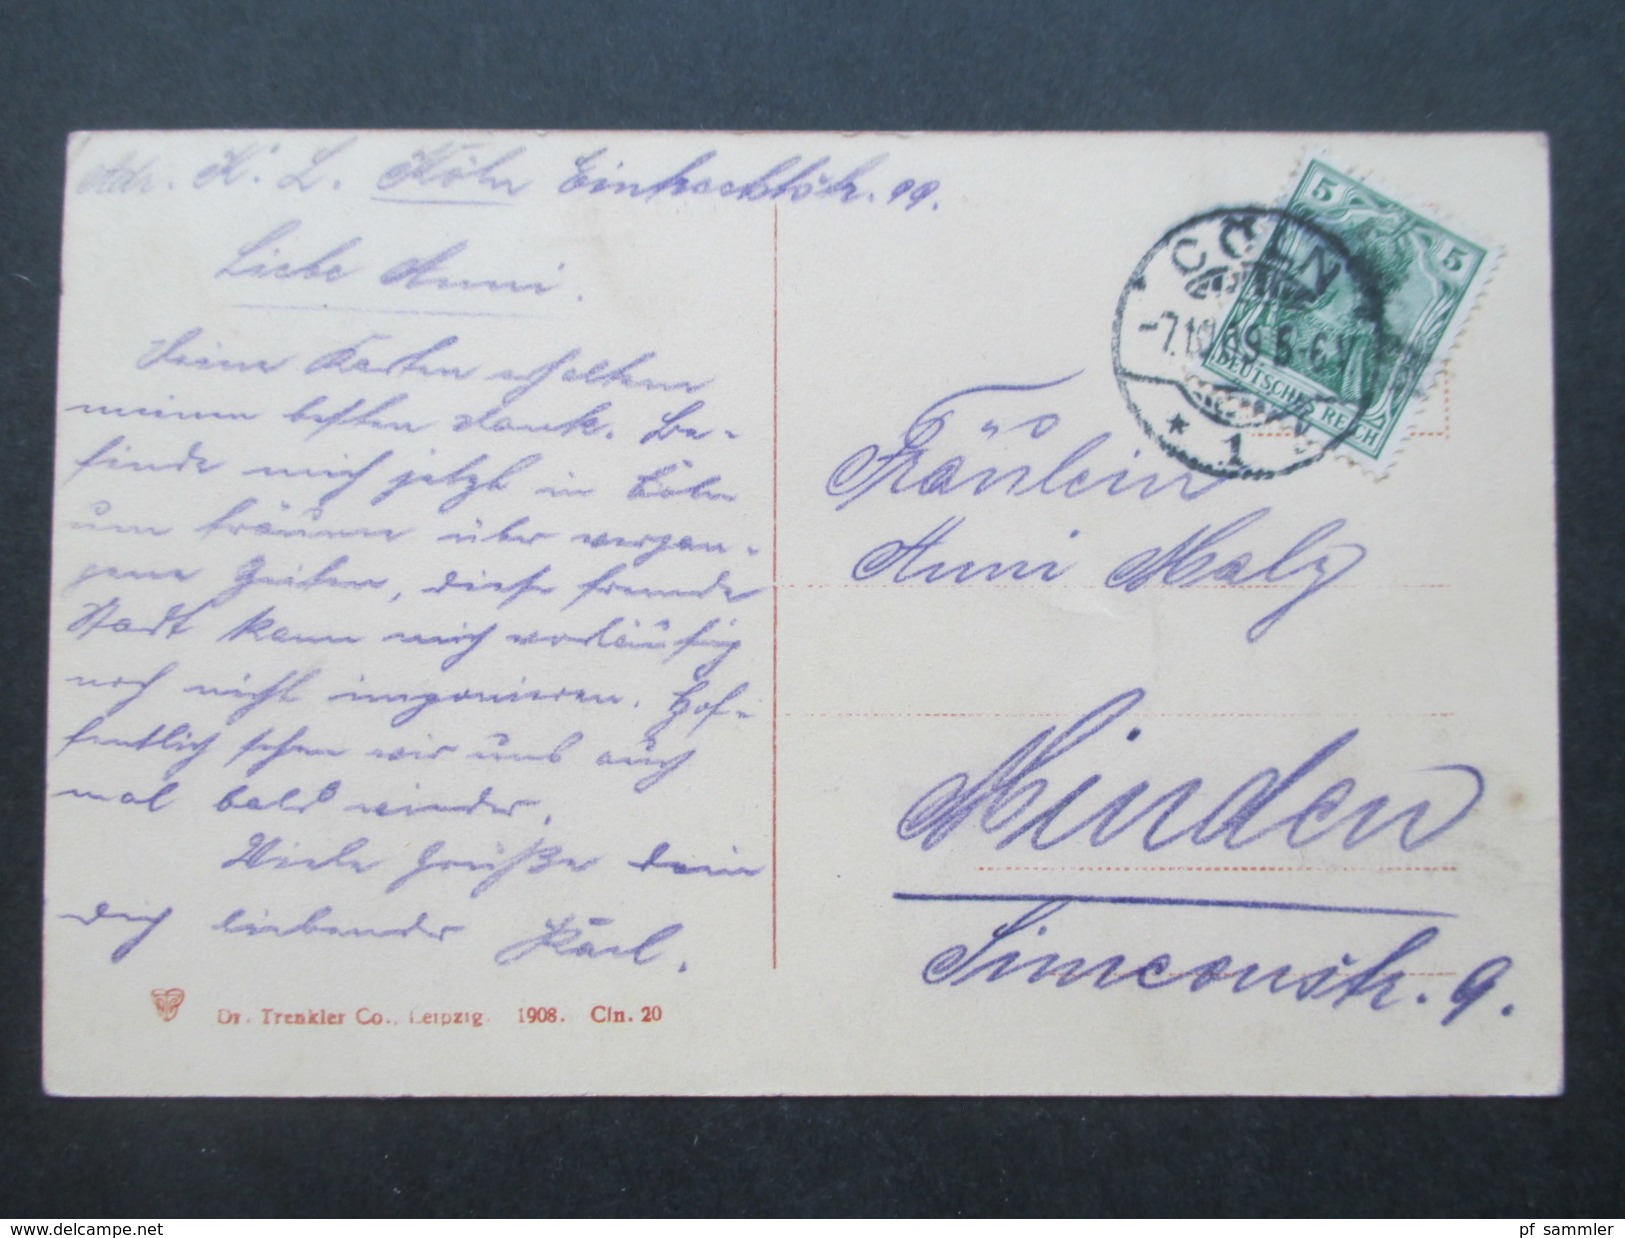 Adr. K. L. Köln Eintrachtstr. 99.
Liebe Anni.
Deine Karten erhalten
meinen besten Dank. Be-
finde mich jetzt in Cöln
um träume über vergan-
gene Zeiten, diese fremde
Stadt kann mich vorläufig
noch nicht imponieren. Hof-
fentlich sehen wir uns auch
mal bald wieder.
Viele Grüße dein
dich liebender Karl.
Dr. Trenkler Co., Leipzig. 1908. Cln. 20
5
5
DEUTSCHES REICH
CÖLN
-7.10.09.5-6
* 1
Fräulein
Anni Malz
Minden
Simeonstr. 9.
www.delcampe.net
pf_sammler